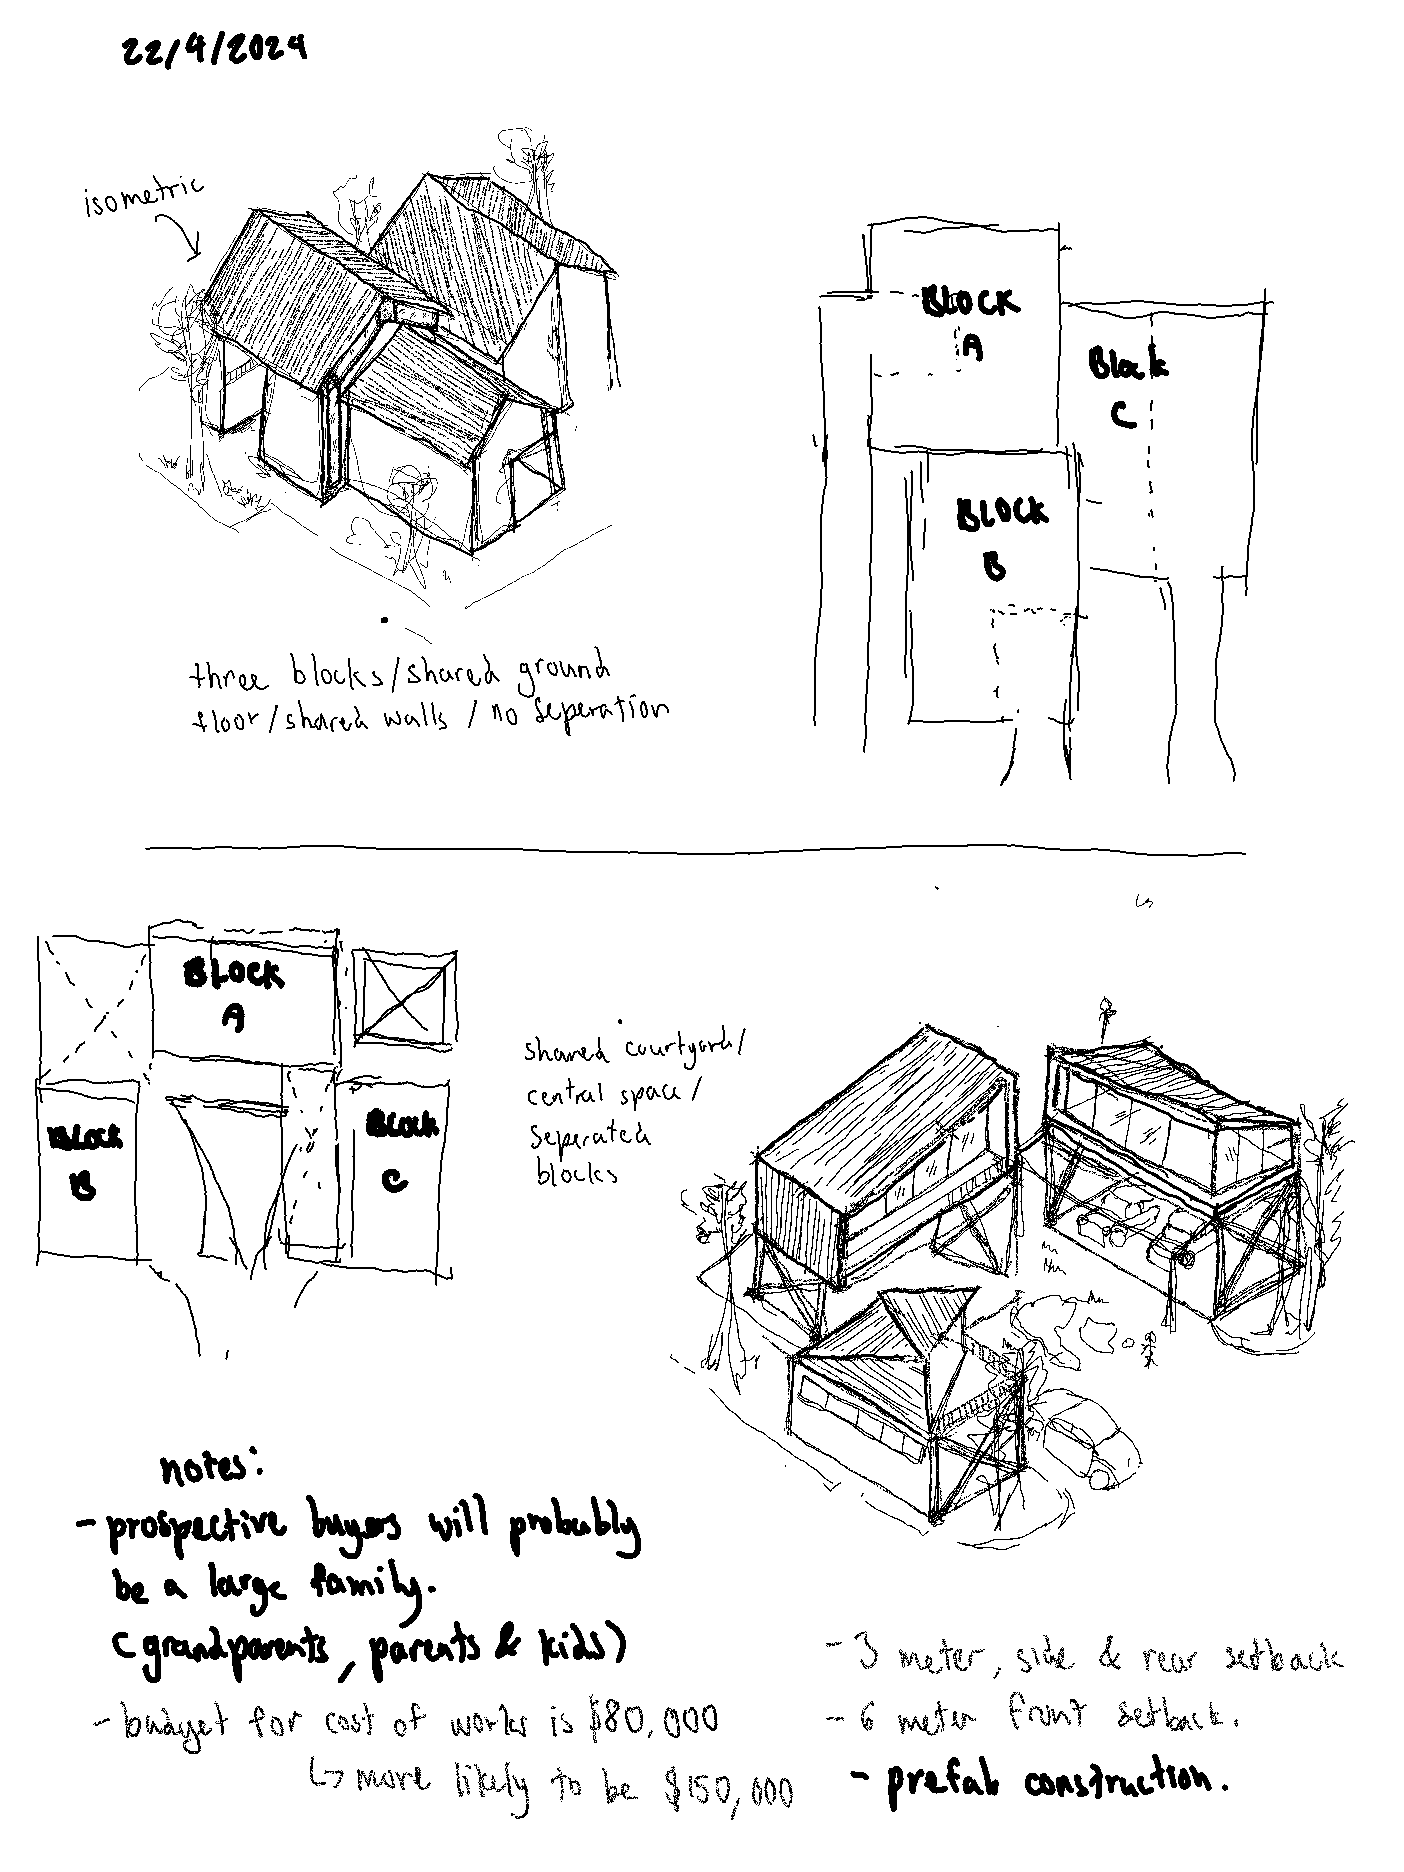 22/9/2024
isometric
BLOCK
A
Block
C
BLOCK
B
three blocks/shared ground
floor/shared walls / no seperation
BLOCK
A
Block
B
BLOCK
C
shared courtyard/
central space/
seperated
blocks
notes:
- prospective buyers will probably
be a large family.
(grandparents, parents & kids)
- budget for cost of works is $80,000
↳ more likely to be $150,000
- 3 meter, side & rear setback
- 6 meter front setback.
- prefab construction.